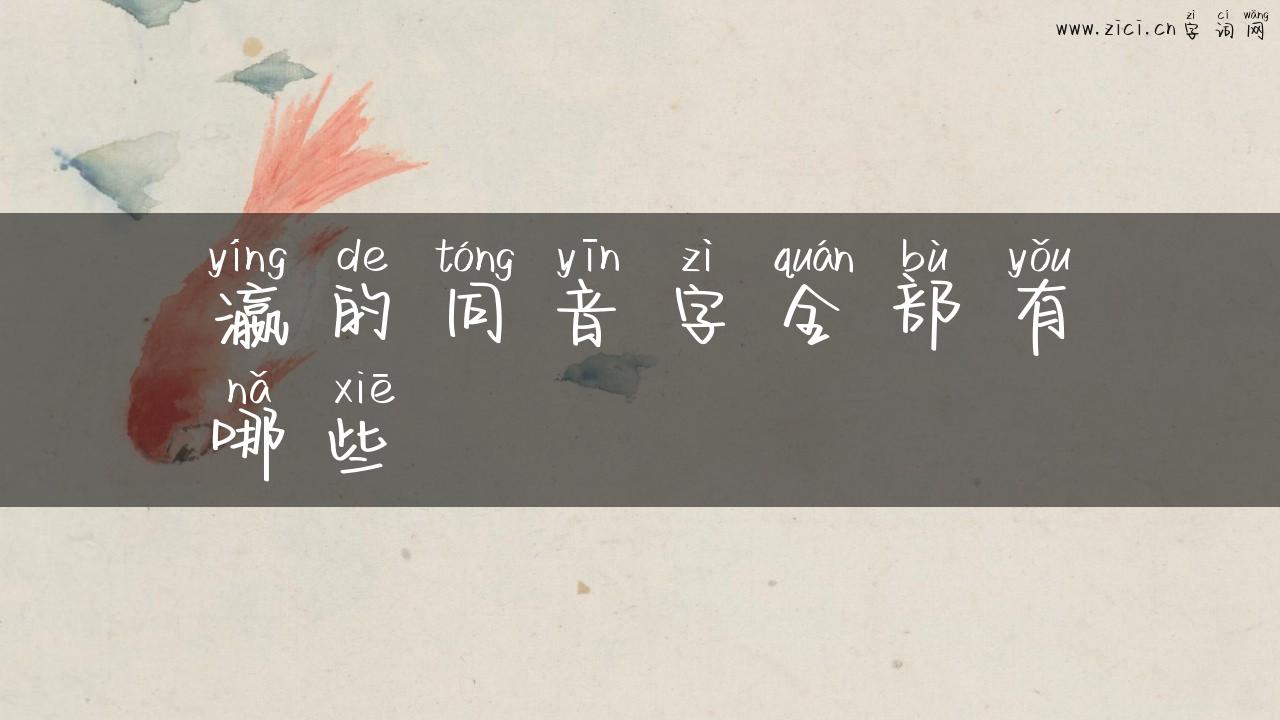 zì cí wǎng
www.zici.cn 字词网
yíng de tóng yīn zì quán bù yǒu
瀛的同音字全部有
nǎ xiē
哪些